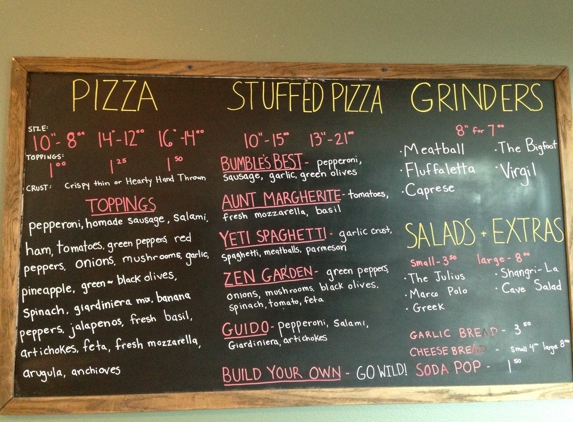 PIZZA
SIZE:
10"-8⁰⁰ 14"-12⁰⁰ 16"-14⁰⁰
TOPPINGS:
1⁰⁰ 1²⁵ 1⁵⁰
CRUST: Crispy thin or Hearty Hand Thrown
TOPPINGS
pepperoni, homade sausage, salami,
ham, tomatoes, green peppers, red
peppers, onions, mushrooms, garlic,
pineapple, green + black olives,
Spinach, giardiniera mix, banana
peppers, jalapenos, fresh basil,
artichokes, feta, fresh mozzarella,
arugula, anchovies
STUFFED PIZZA
10"-15⁰⁰ 13"-21⁰⁰
BUMBLE'S BEST - pepperoni,
sausage, garlic, green olives
AUNT MARGHERITE - tomatoes,
fresh mozzarella, basil
YETI SPAGHETTI - garlic crust,
spaghetti, meatballs, parmeson
ZEN GARDEN - green peppers,
onions, mushrooms, black olives,
spinach, tomato, feta
GUIDO - pepperoni, Salami,
Giardiniera, artichokes
BUILD YOUR OWN - GO WILD!
GRINDERS
8" for 7⁰⁰
· Meatball
· Fluffaletta
· Caprese
· The Bigfoot
· Virgil
SALADS + EXTRAS
small - 3⁵⁰ large - 8⁰⁰
· The Julius
· Marco Polo
· Greek
· Shangri-La
· Cave Salad
GARLIC BREAD - 3⁰⁰
CHEESE BREAD - small 4⁰⁰ large 8⁰⁰
SODA POP - 1⁵⁰